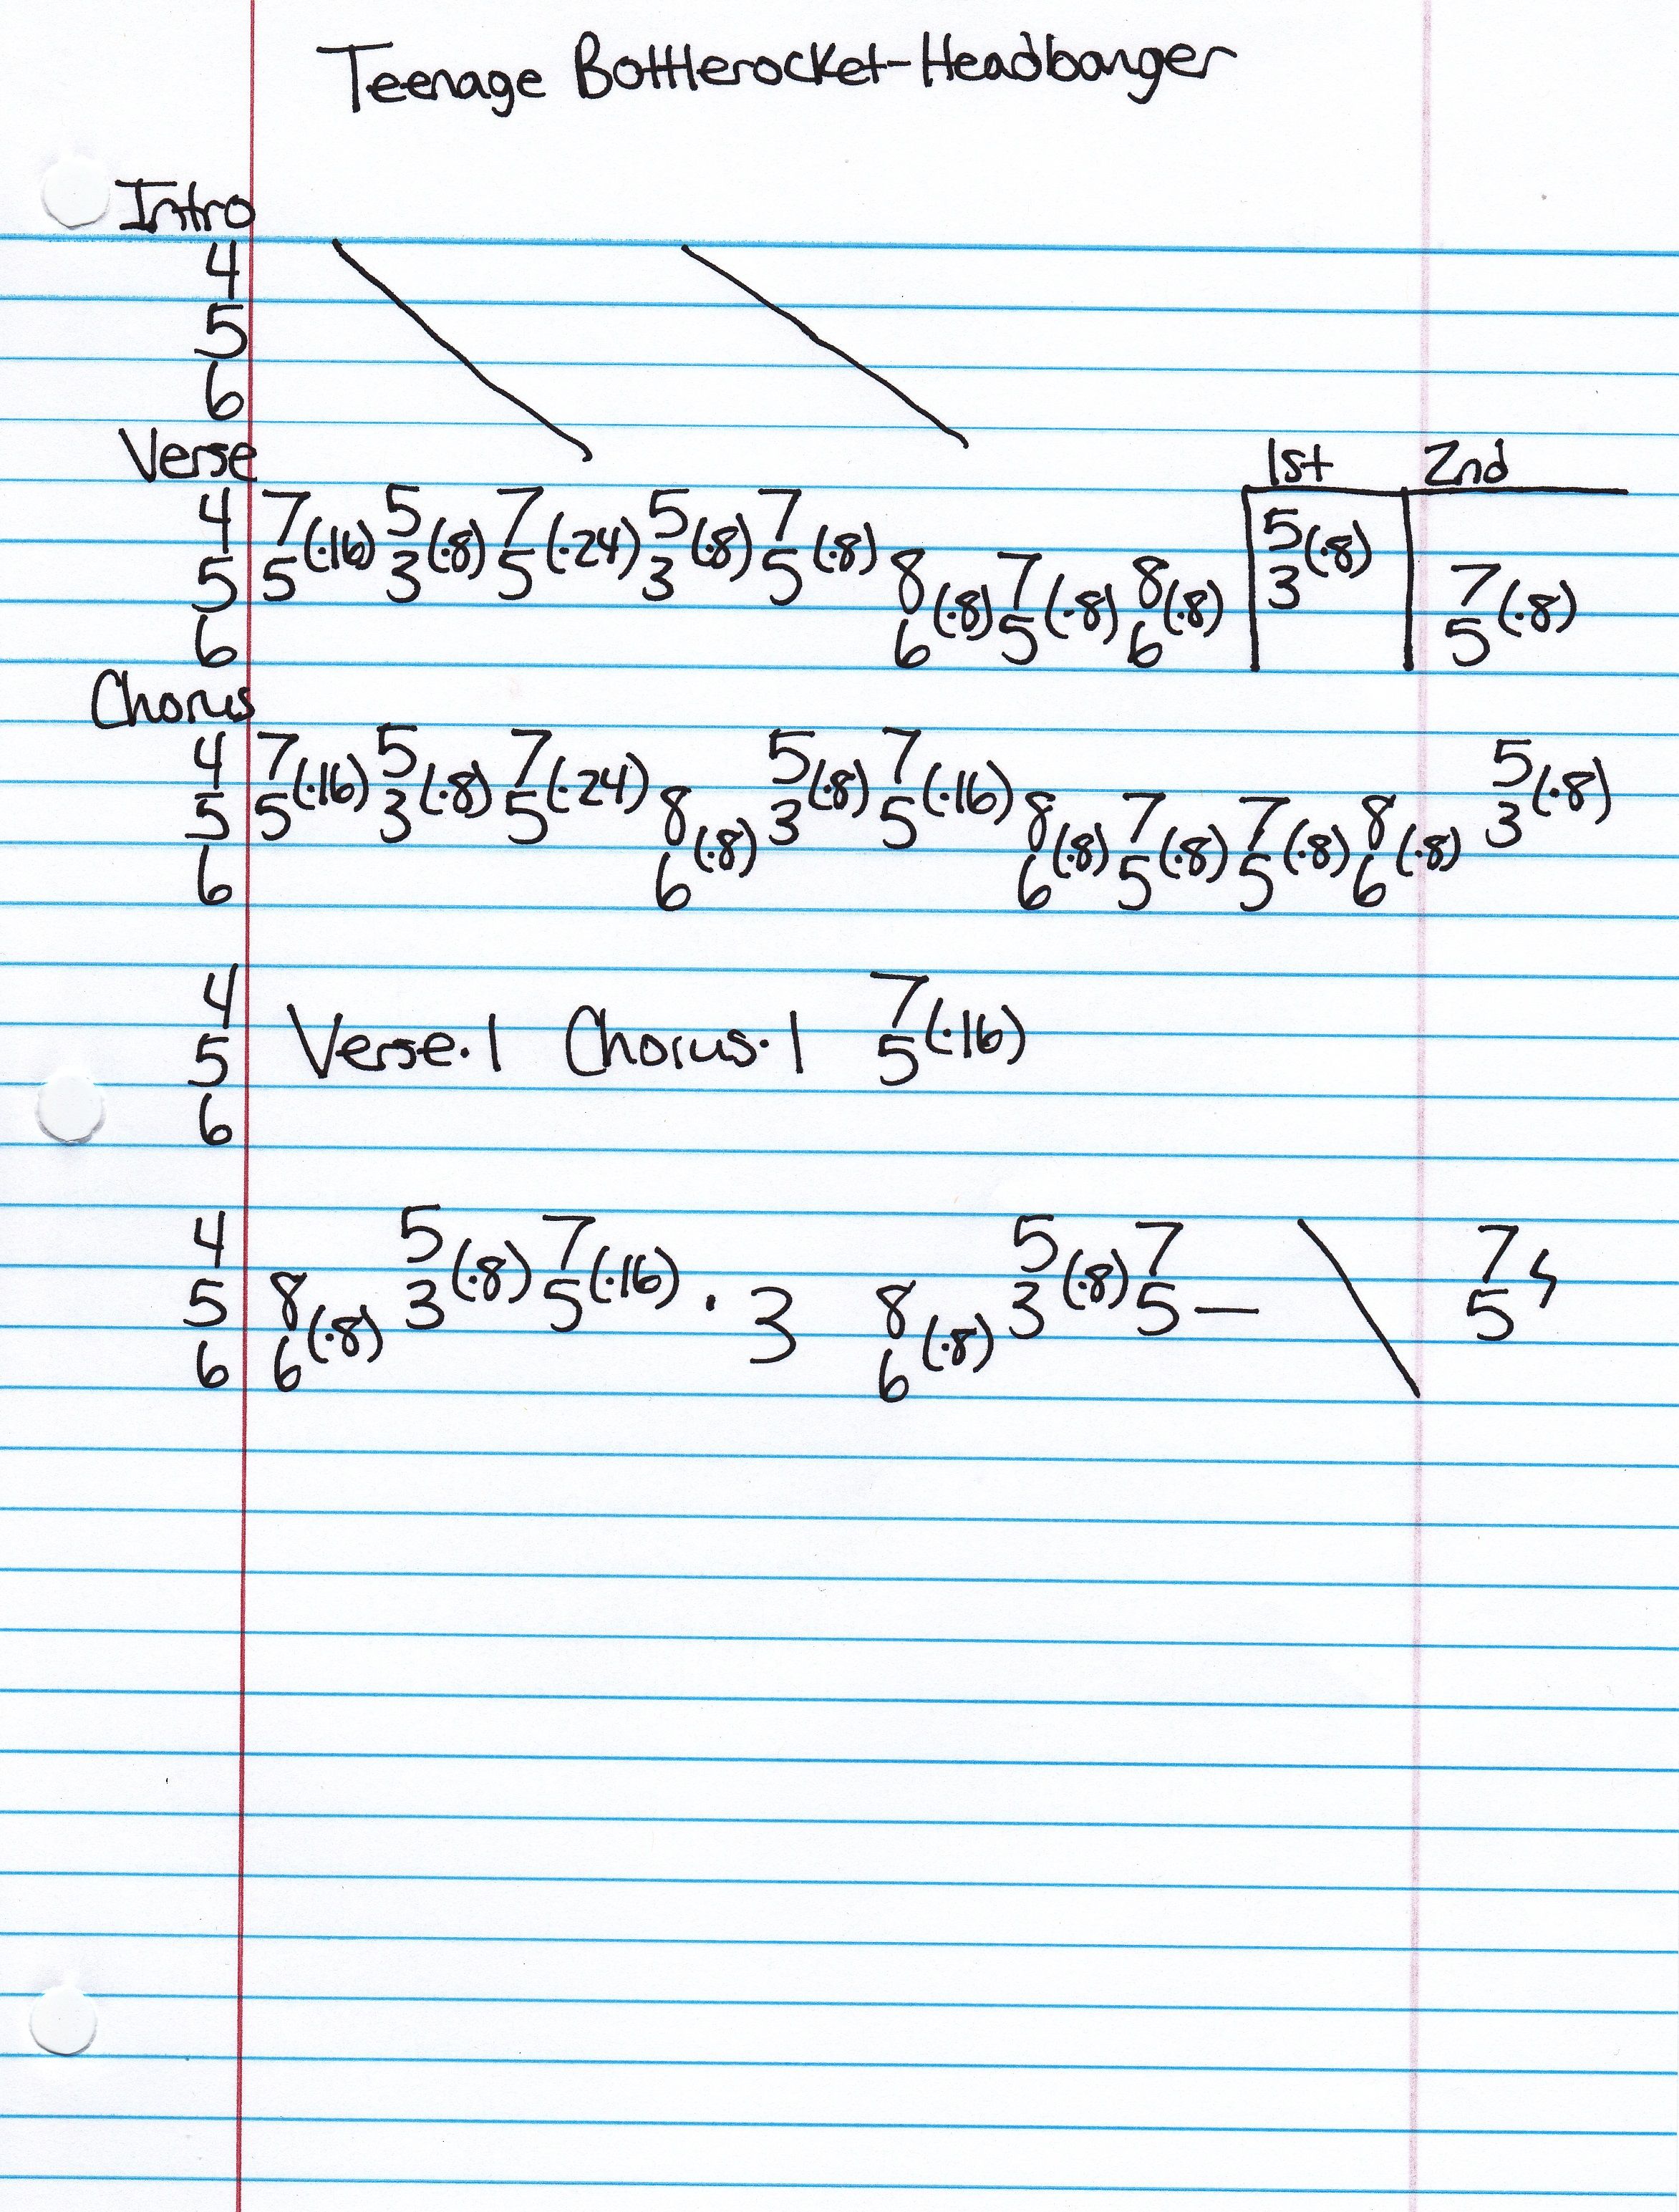 Teenage Bottlerocket-Headbanger
Intro
4
5
6
Verse 1st 2nd
4 7 5 7 5 7 5
5 5(·16) 3(·8) 5(·24) 3(·8) 5(·8) 8 7 8 3(·8) 7
6 6(·8) 5(·8) 6(·8) 5(·8)
Chorus
4 7 5 7 5 7 5
5 5(·16) 3(·8) 5(·24) 8 3(·8) 5(·16) 8 7 7 8 3(·8)
6 6(·8) 6(·8) 5(·8) 5(·8) 6(·8)
4 7
5 Verse·1 Chorus·1 5(·16)
6
4 5 7 5 7 7
5 8 3(·8) 5(·16) ·3 8 3(·8) 5— 5
6 6(·8) 6(·8)